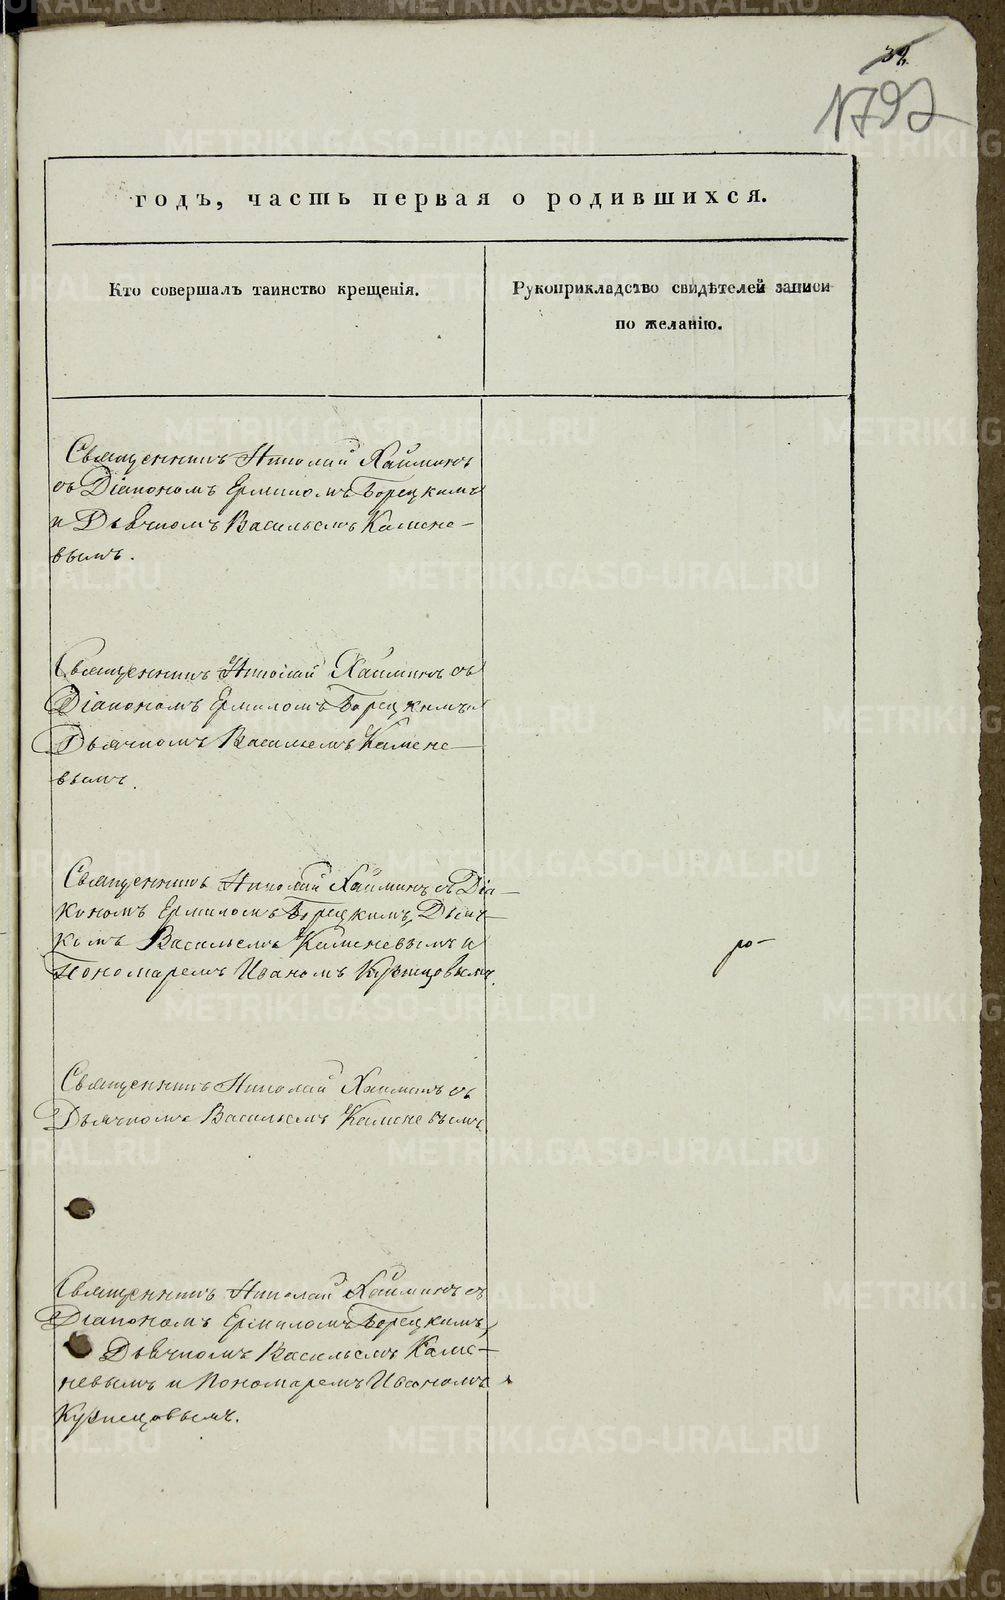 32
1797
годъ, часть первая о родившихся.
Кто совершалъ таинство крещенія.
Рукоприкладство свидѣтелей записи
по желанію.
Священникъ Николай
съ Діакономъ Ермиломъ Борецкимъ
и Дьячкомъ Васильемъ Камене-
вымъ.
Священникъ Николай съ
Діакономъ Ермиломъ Борецкимъ и
Дьячкомъ Васильемъ Камене-
вымъ.
Священникъ Николай съ Діа-
кономъ Ермиломъ Борецкимъ, Дьяч-
комъ Васильемъ Каменевымъ и
Пономаремъ Иваномъ Кузнецовымъ.
ро-
Священникъ Николай съ
Дьячкомъ Васильемъ Каменевымъ.
Священникъ Николай съ
Діакономъ Ермиломъ Борецкимъ,
Дьячкомъ Васильемъ Каме-
невымъ и Пономаремъ Иваномъ
Кузнецовымъ.
METRIKI.GASO-URAL.RU